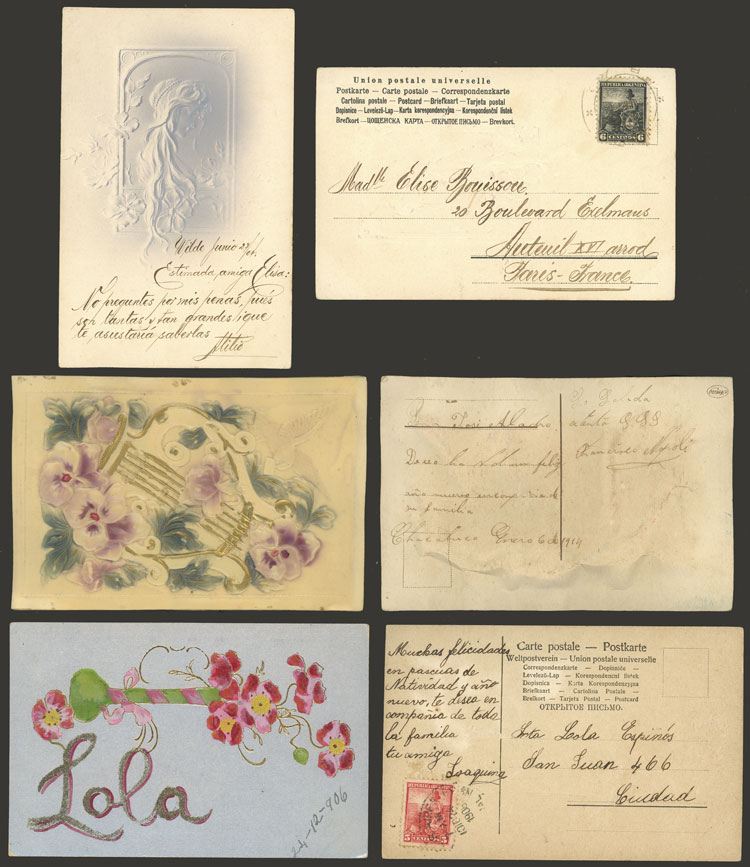 Wilde Junio 28/
Estimada amiga Elisa:
No preguntes por mis penas, pués
son tantas y tan grandes que
te asustaría saberlas
Atilio
Union postale universelle
Postkarte — Carte postale — Correspondenzkarte
Cartolina postale — Postcard — Briefkaart — Tarjeta postal
Dopisnice — Levelező-Lap — Karta korespondencyjna — Korespondenční listek
Brefkort — ЦОЩЕНСКА КАРТА — ОТКРЫТОЕ ПИСЬМО — Brevkort.
REPUBLICA ARGENTINA
6 CENTAVOS 6
Madlle Elise Bouissou
20 Boulevard Exelmans
Auteuil XVI arrod
Paris - France.
José
Deseo
año nuevo en
su familia
Enero 6 de 1914
S. S. S.
Francisco
Lola
24-12-906
Muchas felicidades
en pascuas de
Natividad y año
nuevo, te desea en
compañia de toda
la familia
tu amiga
Joaquina
Carte postale — Postkarte
Weltpostverein — Union postale universelle
Correspondenzkarte — Dopisnice —
Levelező-Lap — Korespondenční listek
Dopisnica — Karta korespondencyjna
Briefkaart — Cartolina Postale —
Brefkort — Tarjeta Postal — Postcard
ОТКРЫТОЕ ПИСЬМО.
Srta Lola Espiñós
San Juan 466
Ciudad
5 CENTAVOS 5